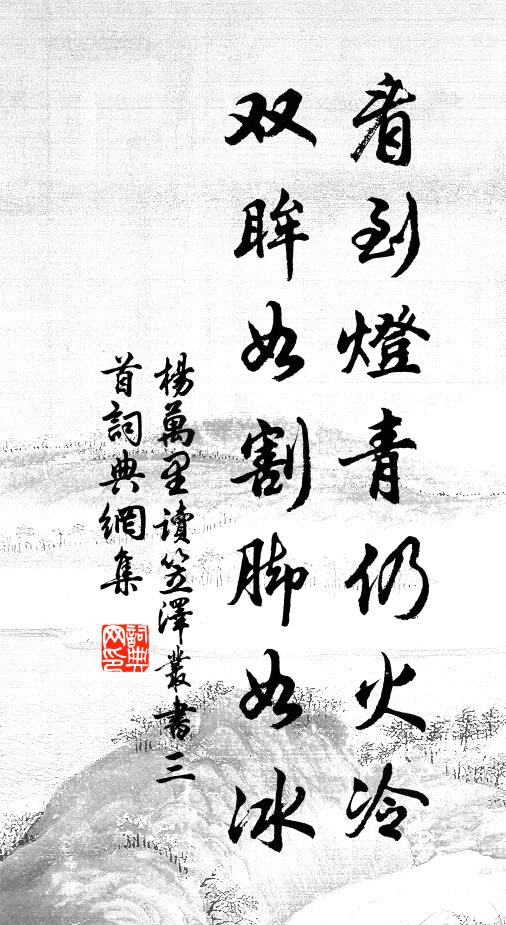 看到燈青仍火冷
双眸如割脚如冰
楊萬里讀笠澤叢書三
首詞典網集
詞典
网印